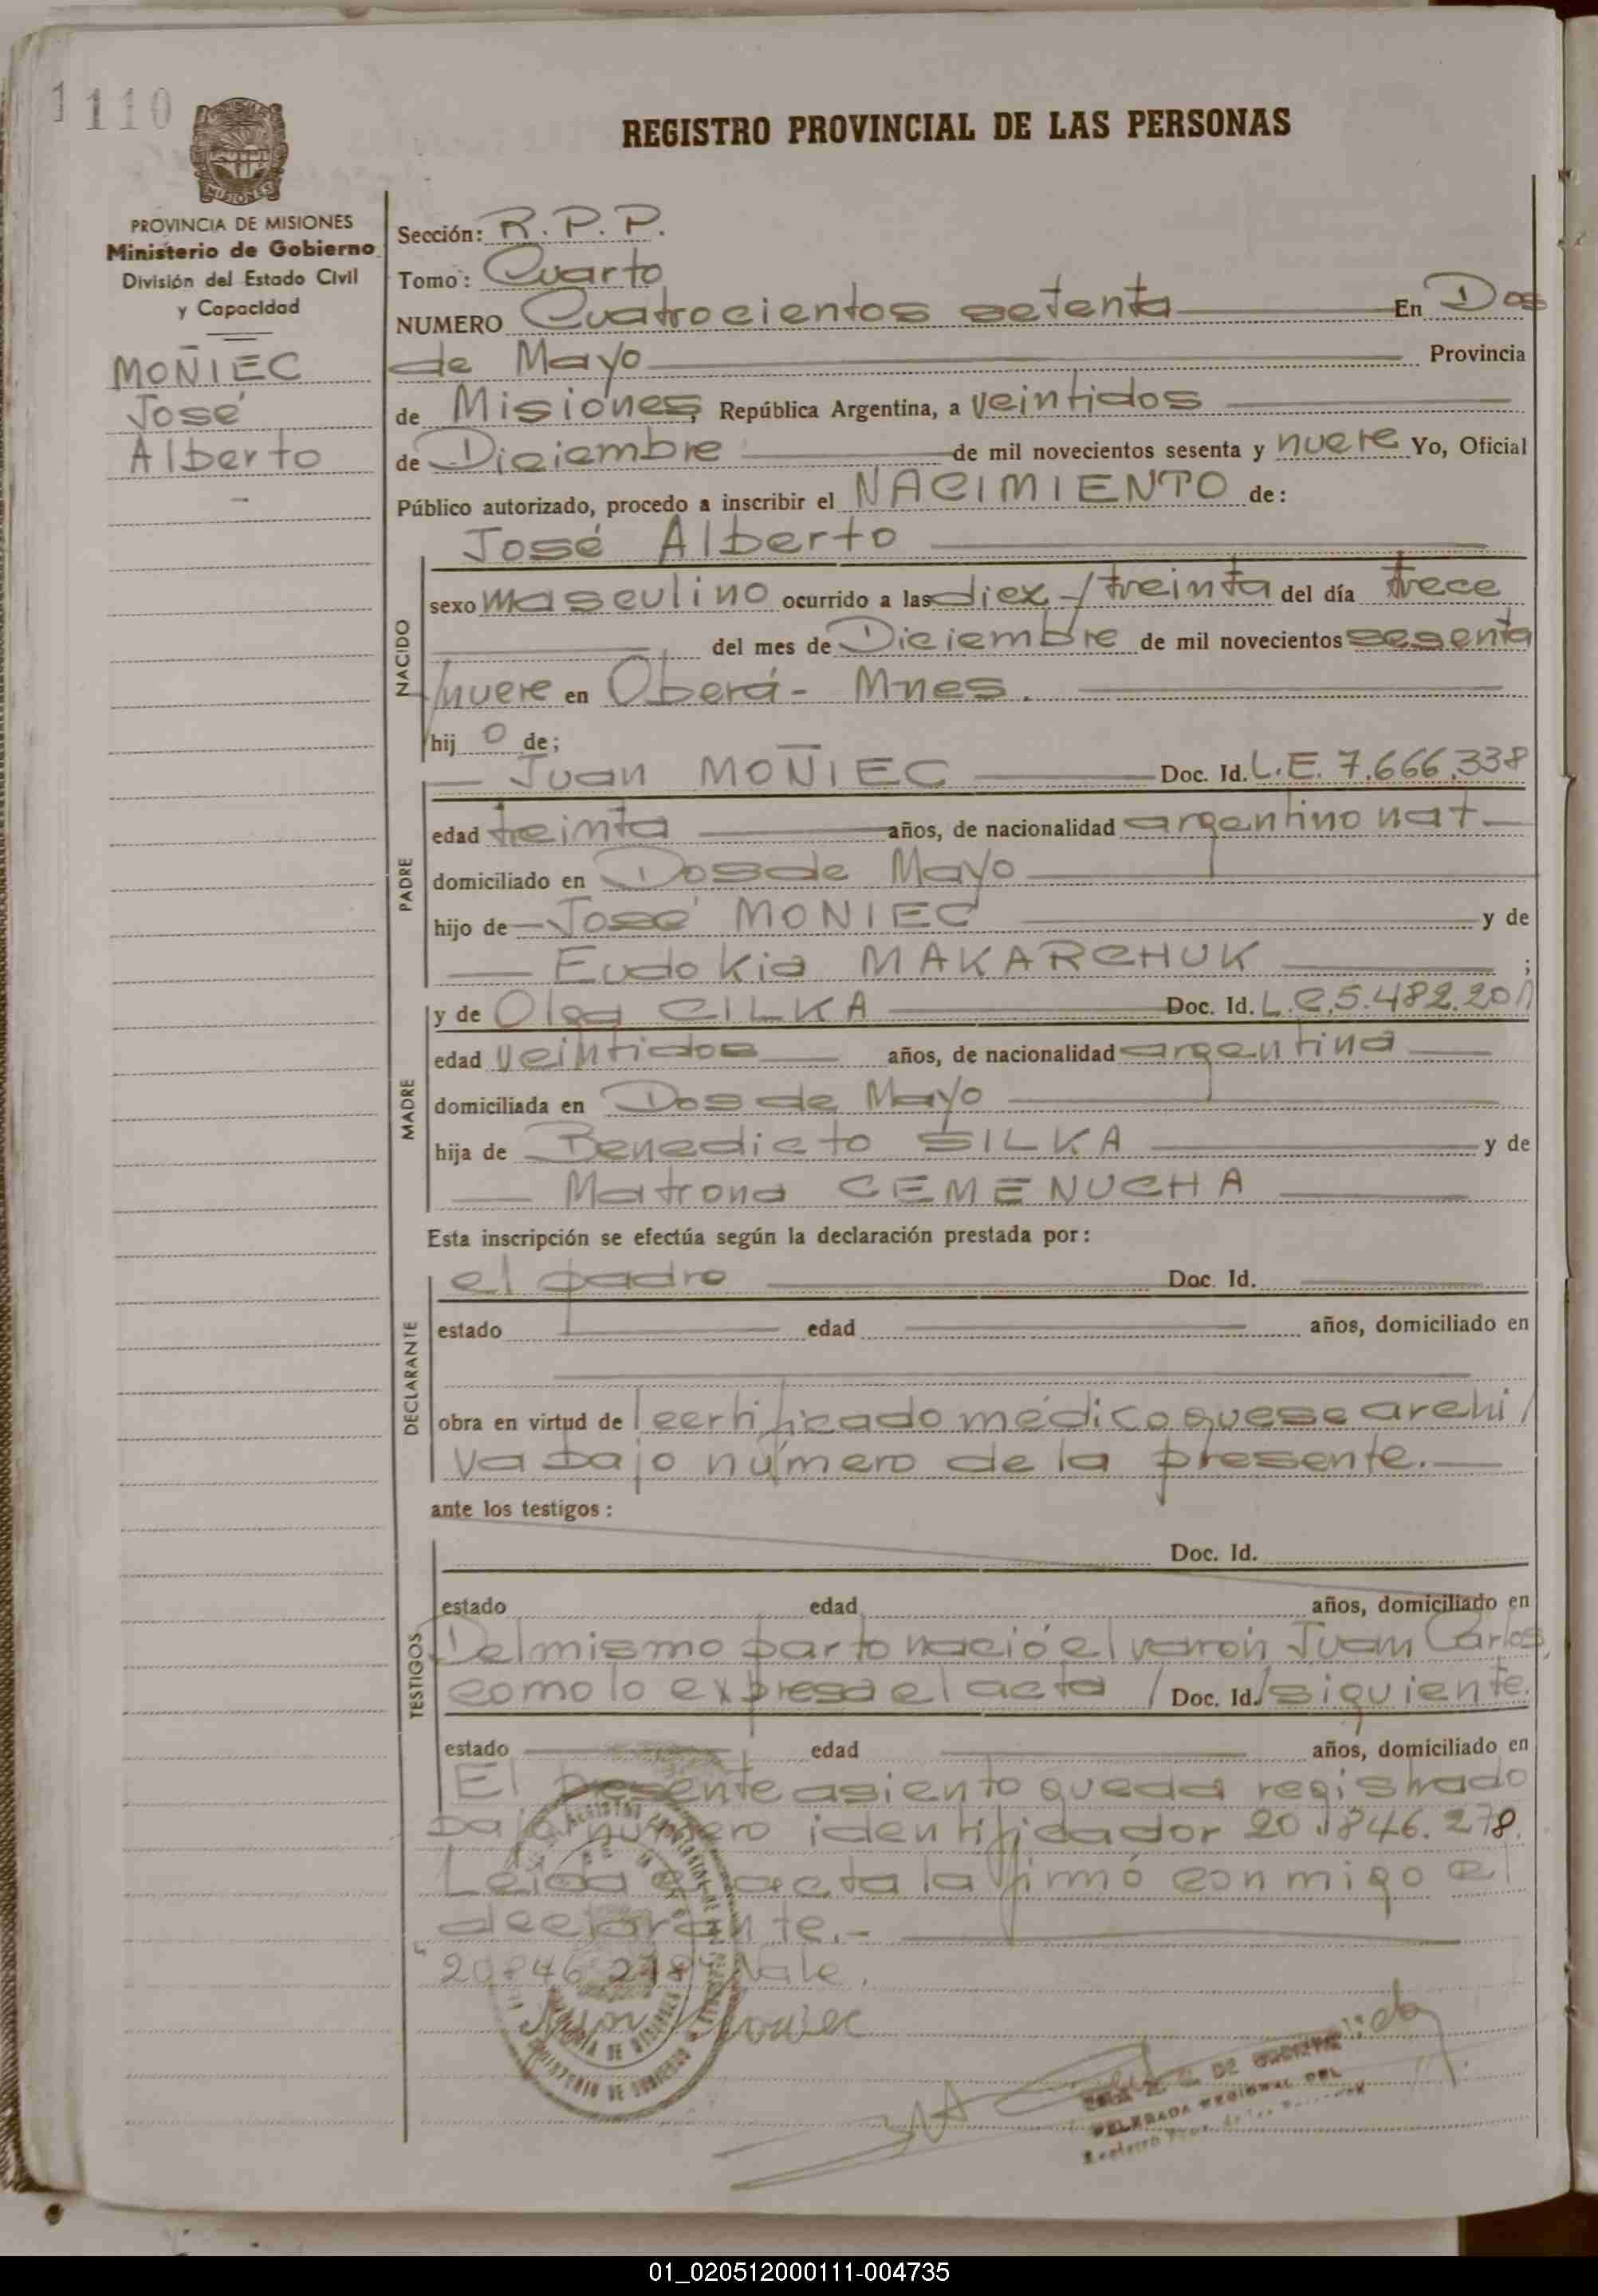 1110
REGISTRO PROVINCIAL DE LAS PERSONAS
PROVINCIA DE MISIONES
Ministerio de Gobierno
División del Estado Civil
y Capacidad
MOÑIEC
José
Alberto
Sección: R. P. P.
Tomo: Cuarto
NUMERO Cuatrocientos setenta En Dos
de Mayo Provincia
de Misiones, República Argentina, a veintidos
de Diciembre de mil novecientos sesenta y nueve Yo, Oficial
Público autorizado, procedo a inscribir el NACIMIENTO de:
José Alberto
NACIDO
sexo masculino ocurrido a las diez / treinta del día trece
del mes de Diciembre de mil novecientos sesenta
/nueve en Oberá - Mnes.
hij o de;
PADRE
Juan MOÑIEC Doc. Id. L.E. 7.666.338
edad treinta años, de nacionalidad argentino nat
domiciliado en Dos de Mayo
hijo de José MONIEC y de
Eudokia MAKARCHUK ;
MADRE
y de Olga CILKA Doc. Id. L.C. 5.482.201
edad veintidos años, de nacionalidad argentina
domiciliada en Dos de Mayo
hija de Benedicto SILKA y de
Matrona CEMENUCHA
Esta inscripción se efectúa según la declaración prestada por:
DECLARANTE
el padre Doc. Id.
estado edad años, domiciliado en
obra en virtud de /certificado médico que se archi/
va bajo número de la presente.
ante los testigos:
TESTIGOS
Doc. Id.
estado edad años, domiciliado en
Del mismo parto nació el varón Juan Carlos,
como lo expresa el acta / Doc. Id. /siguiente.
estado edad años, domiciliado en
El presente asiento queda registrado
bajo número identificador 20.846.278.
Leída el acta la firmó conmigo el
declarante.-
20846278 Vale.
DELEGADA REGIONAL DEL
01_020512000111-004735